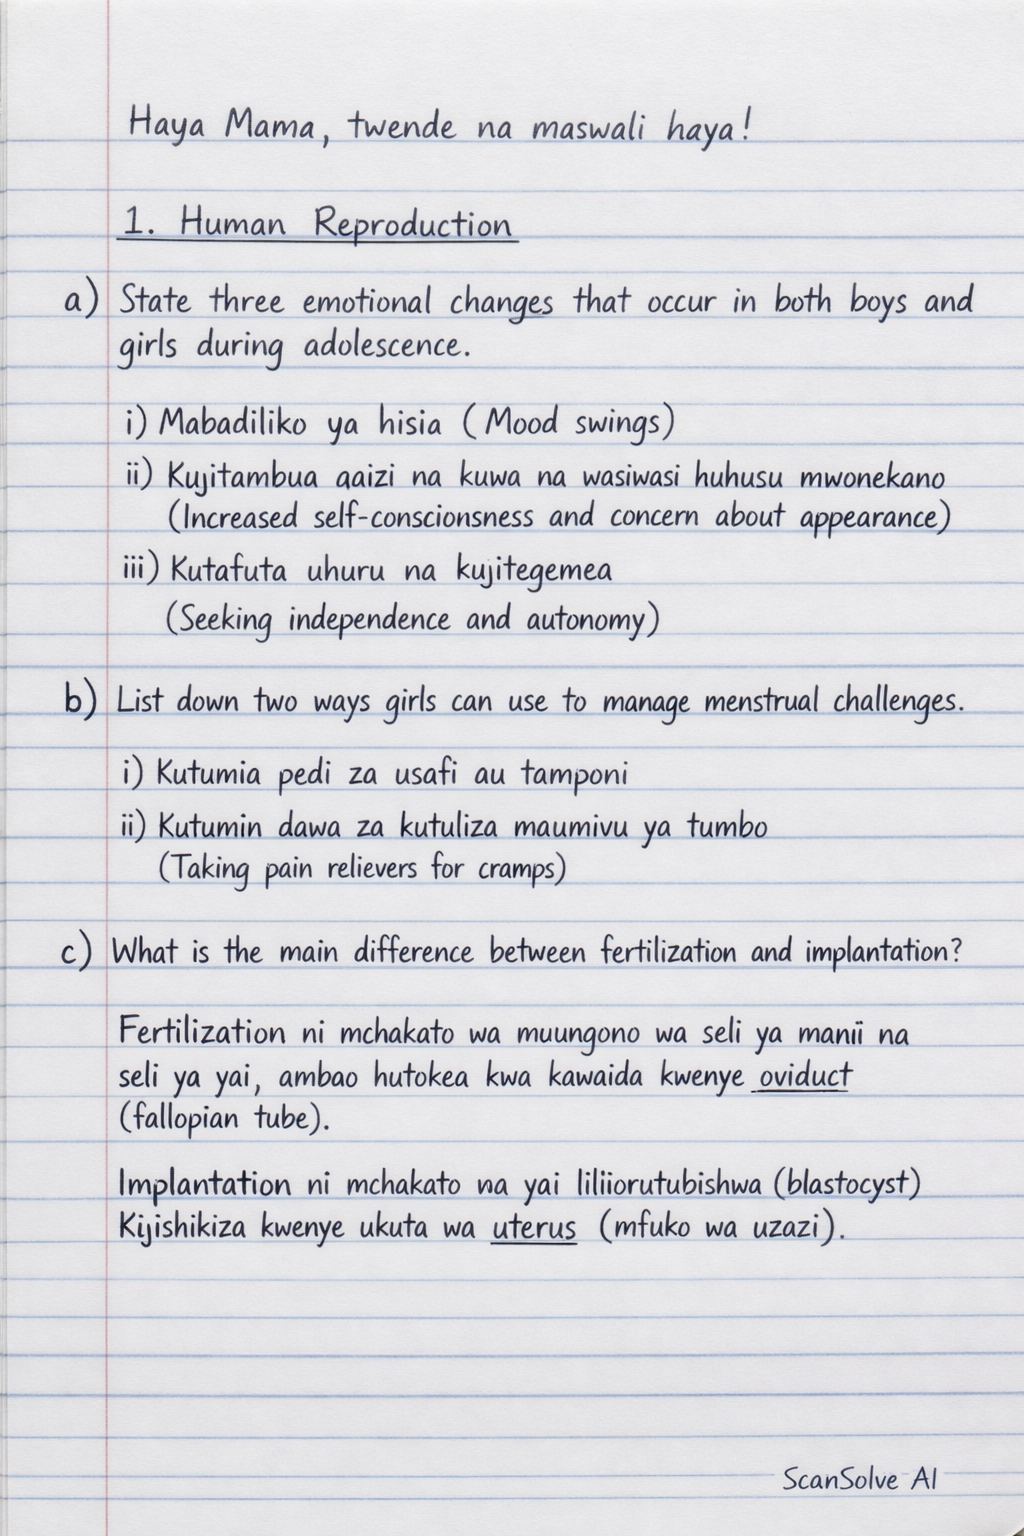 Haya Mama, twende na maswali haya!
1. Human Reproduction
a) State three emotional changes that occur in both boys and
girls during adolescence.
i) Mabadiliko ya hisia (Mood swings)
ii) Kujitambua aaizi na kuwa na wasiwasi huhusu mwonekano
(Increased self-conscionsness and concern about appearance)
iii) Kutafuta uhuru na kujitegemea
(Seeking independence and autonomy)
b) List down two ways girls can use to manage menstrual challenges.
i) Kutumia pedi za usafi au tamponi
ii) Kutumin dawa za kutuliza maumivu ya tumbo
(Taking pain relievers for cramps)
c) What is the main difference between fertilization and implantation?
Fertilization ni mchakato wa muungono wa seli ya manii na
seli ya yai, ambao hutokea kwa kawaida kwenye oviduct
(fallopian tube).
Implantation ni mchakato wa yai liliiorutubishwa (blastocyst)
Kijishikiza kwenye ukuta wa uterus (mfuko wa uzazi).
ScanSolve AI